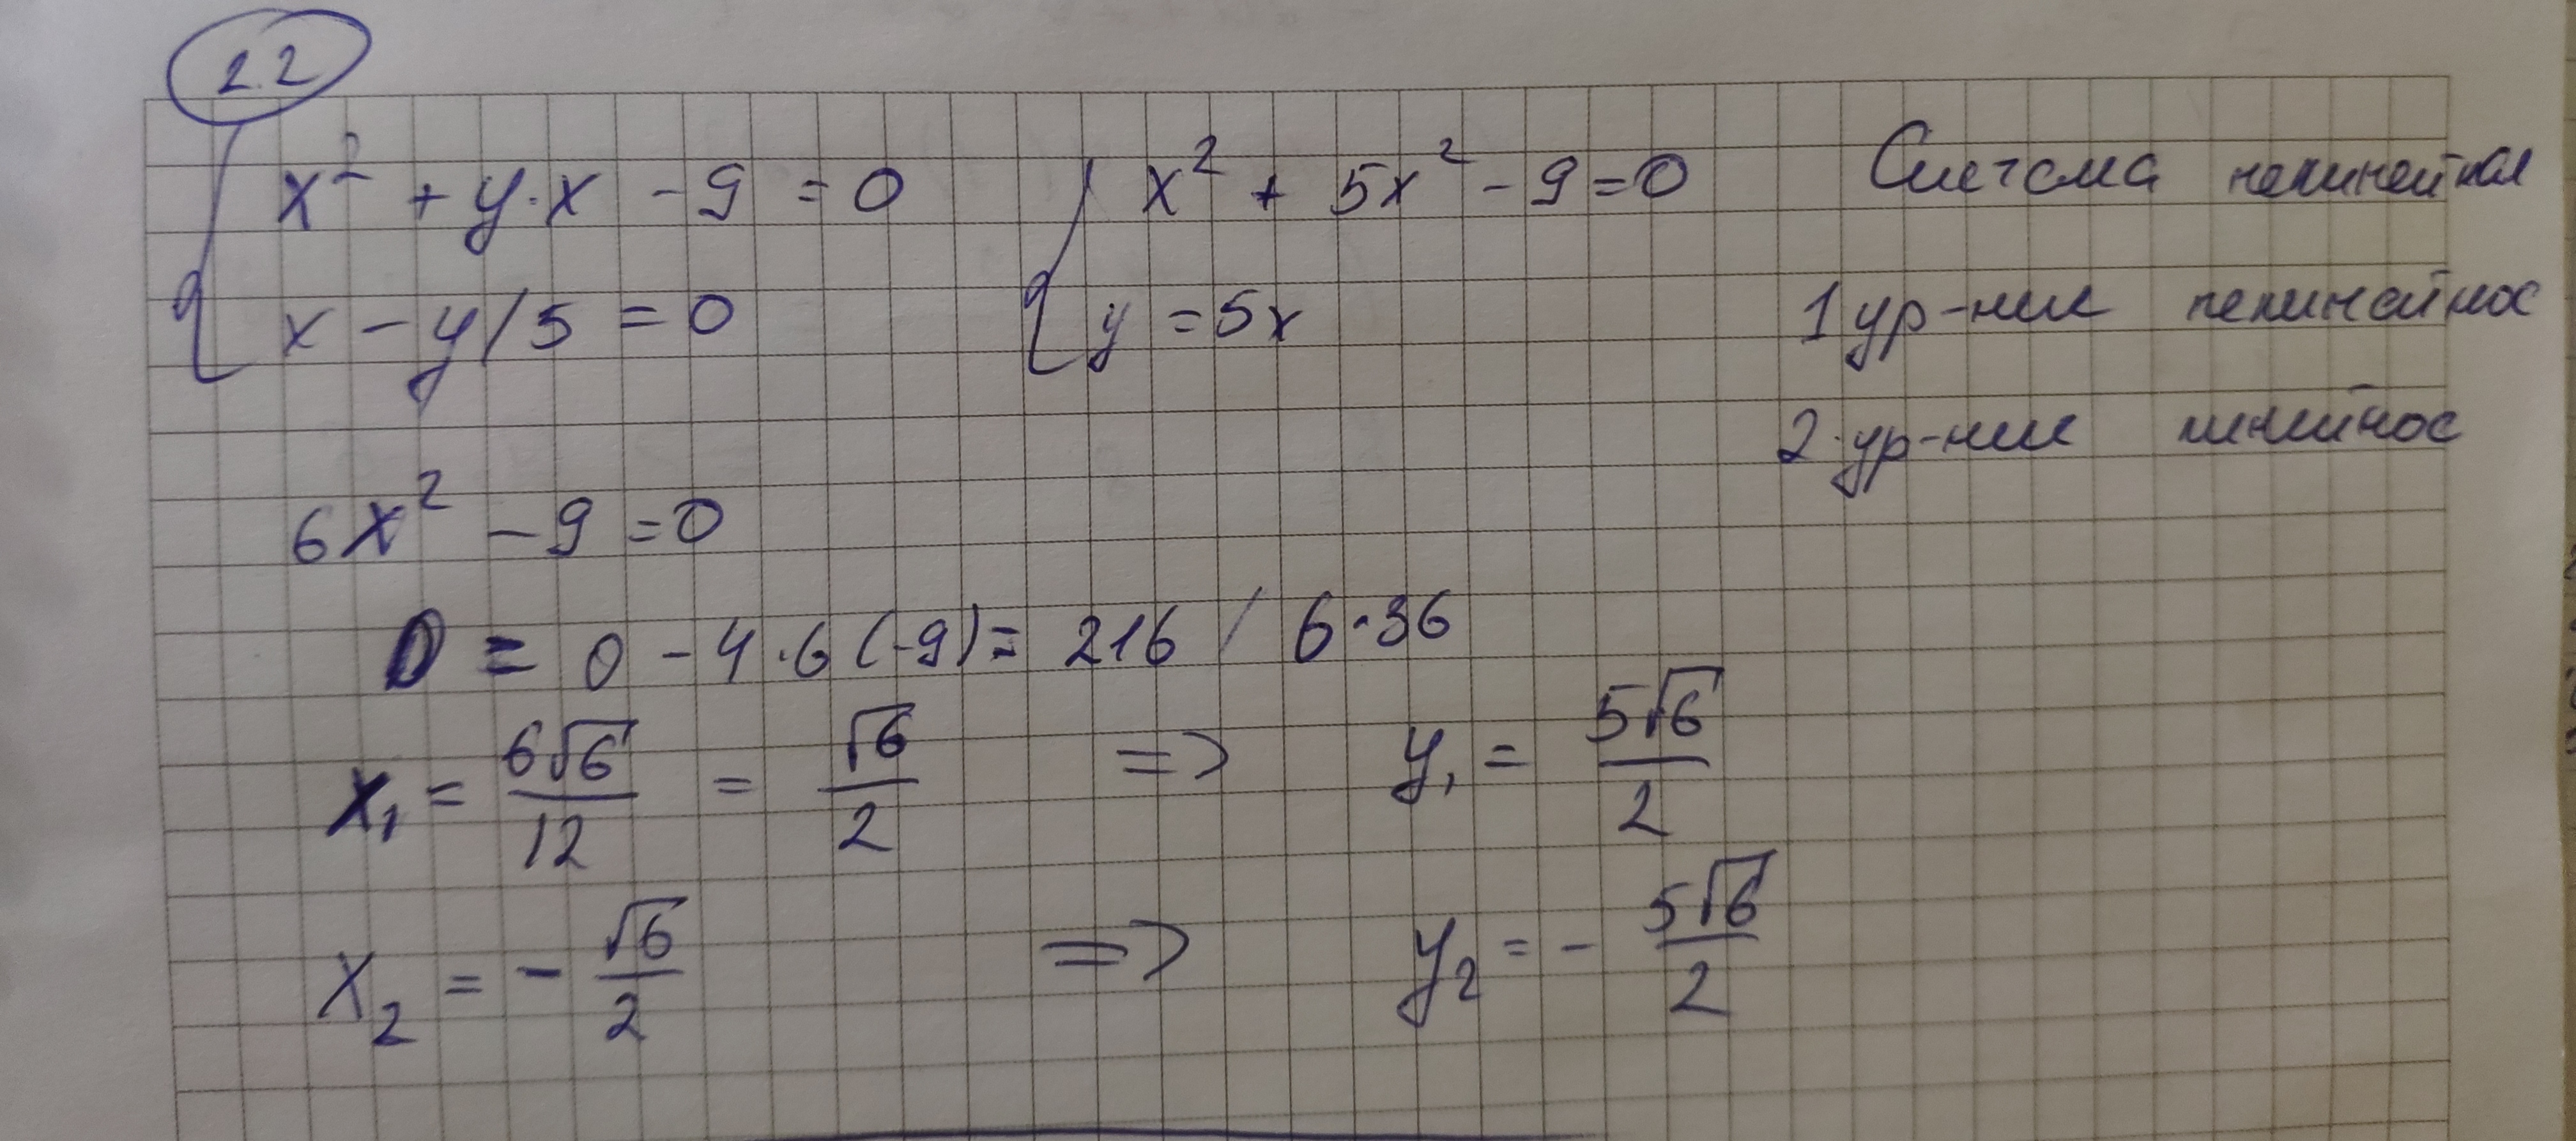 2.2
x² + y·x - 9 = 0
x² + 5x² - 9 = 0
Система нелинейная
x - y/5 = 0
y = 5x
1 ур-ние нелинейное
2 ур-ние линейное
6x² - 9 = 0
D = 0 - 4·6(-9) = 216 / 6·36
x₁ = 6√6/12 = √6/2 => y₁ = 5√6/2
x₂ = - √6/2 => y₂ = - 5√6/2